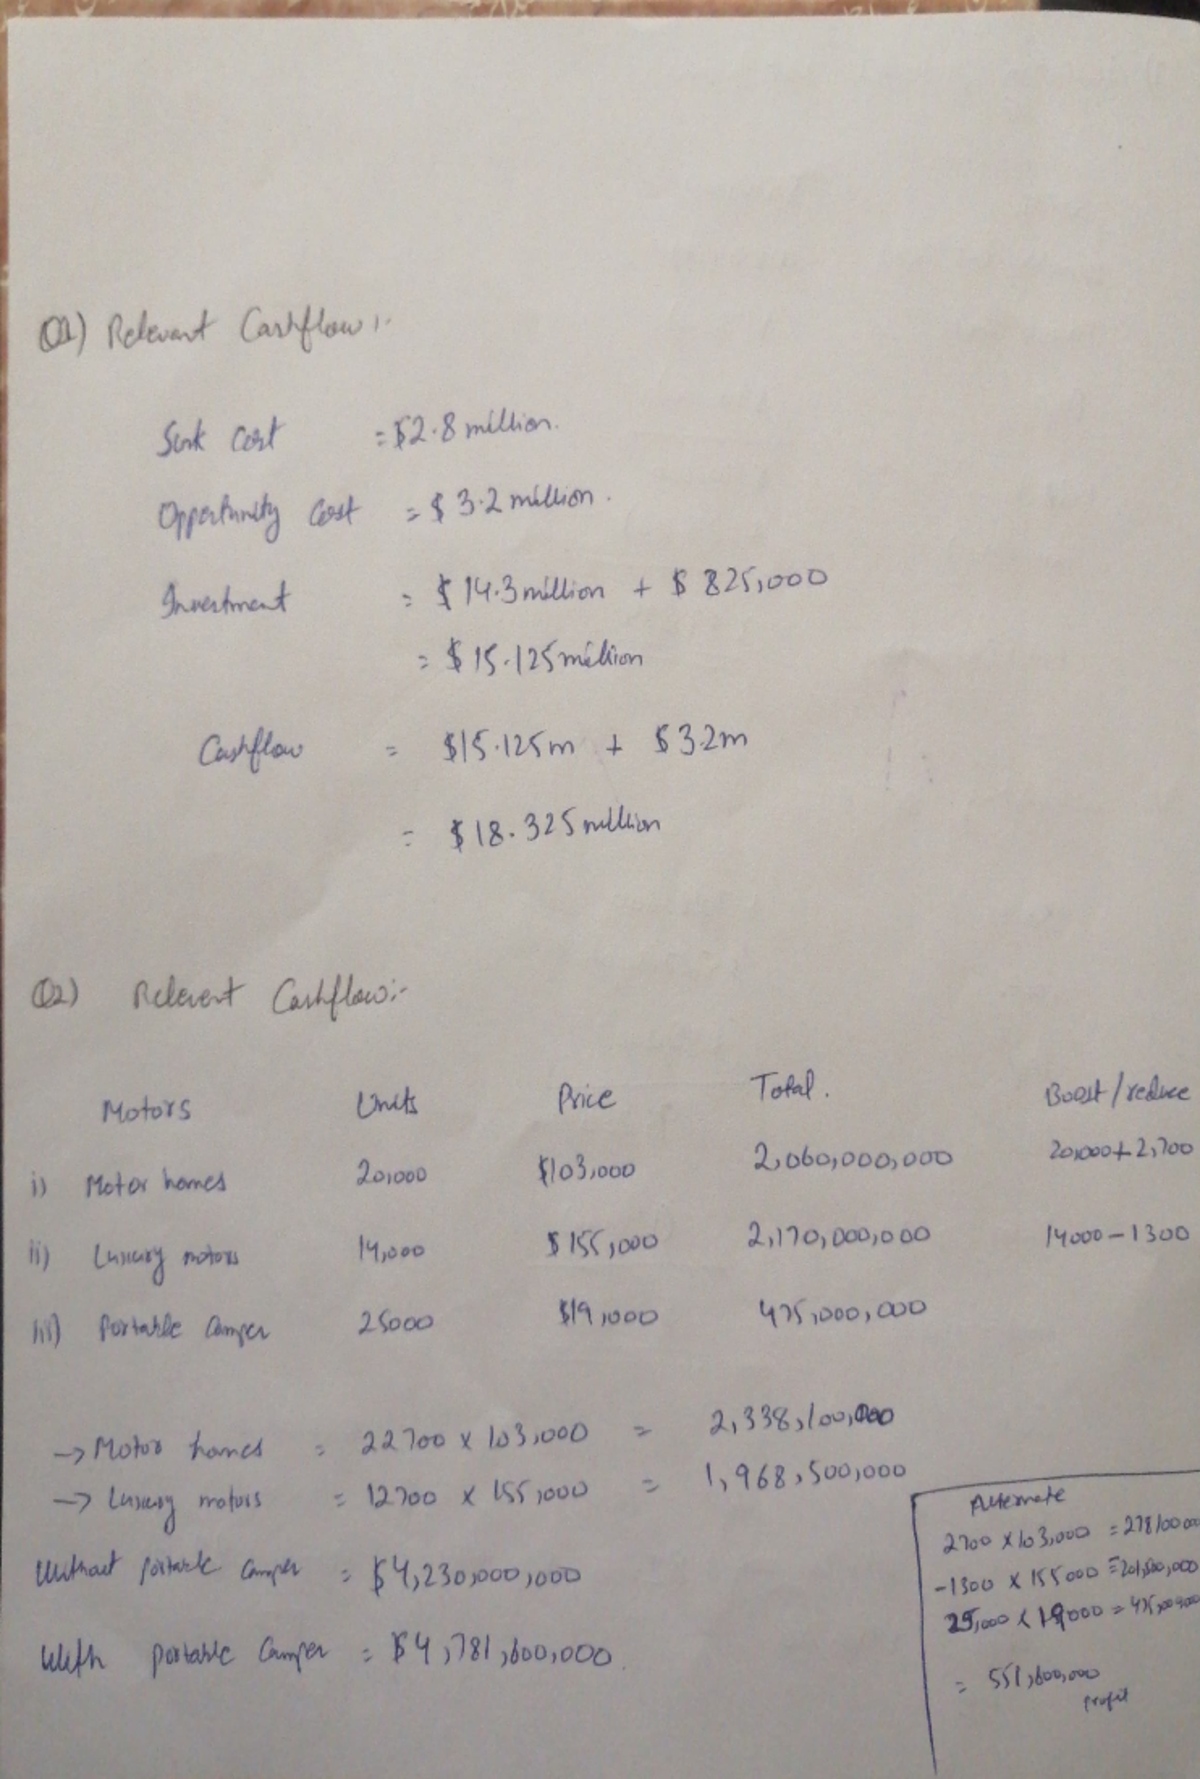 Q1) Relevant Cashflow :-
Sunk Cost = $2.8 million.
Opportunity Cost = $3.2 million.
Investment = $14.3 million + $825,000
= $15.125 million
Cashflow = $15.125m + $3.2m
= $18.325 million
Q2) Relevent Cashflow:-
Motors Units Price Total. Boost/reduce
i) Motor homes 20,000 $103,000 2,060,000,000 20,000+2,700
ii) Luxury motors 14,000 $155,000 2,170,000,000 14000-1300
iii) Portable Camper 25000 $19,000 475,000,000
→ Motor homes = 22700 x 103,000 = 2,338,100,000
→ Luxury motors = 12700 x 155,000 = 1,968,500,000
Without portable camper = $4,230,000,000
With portable camper = $4,781,600,000.
Alternate
2700 x 103,000 = 278100000
-1300 x 155000 = 201,500,000
25,000 x 19000 = 475,000,000
= 551,600,000
profit